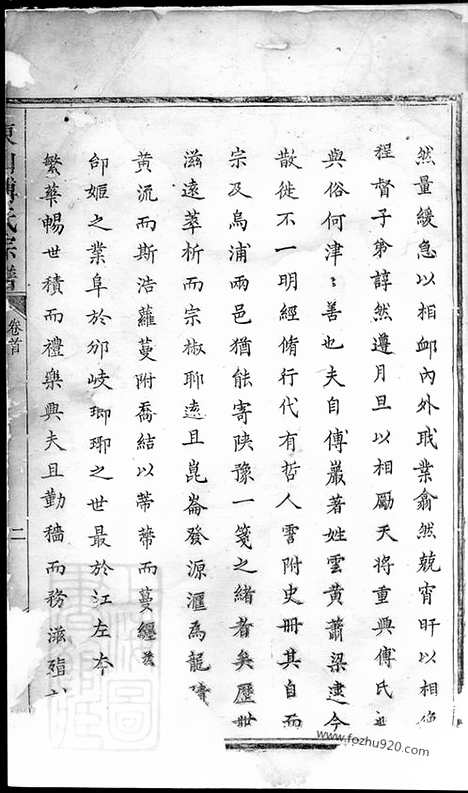 然量緩急以相邮內外戢業翕然兢宵旰以相
程督子弟諄然遵月旦以相勵天將重興傅氏
與俗何津〻善也夫自傅巖著姓雲黃蕭梁逮今
散徙不一明經脩行代有哲人雲附史冊其自而
宗及烏浦兩邑猶能寄陝豫一箋之緒者矣歷世
滋遠萃析而宗椒聊遠且崑崙發源滙為龍
黃流而斯浩蘿蔓附喬結以蒂蒂而蔓纏
邰姬之業阜於邠岐瑯琊之世最於江左本
繁華暢世積而禮樂興夫且勤穡而務滋殖
氏宗譜
卷首
二
www.fozhu920.com